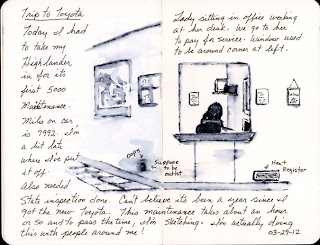 Trip to Toyota
Today I had
to take my
Highlander
in for its
first 5000
Maintenance.
Miles on car
is 7992. I'm
a bit late
where I've put
it off.
Also needed
State inspection done. Can't believe its been a year since I
got the new Toyota. This maintenance takes about an hour
or so and to pass the time, I'm sketching. I'm actually doing
this with people around me!
Lady sitting in office working
at her desk. We go to her
to pay for service. Window used
to be around corner at left.
oops
Suppose
to be
outlet
Heat
Register
03-29-12